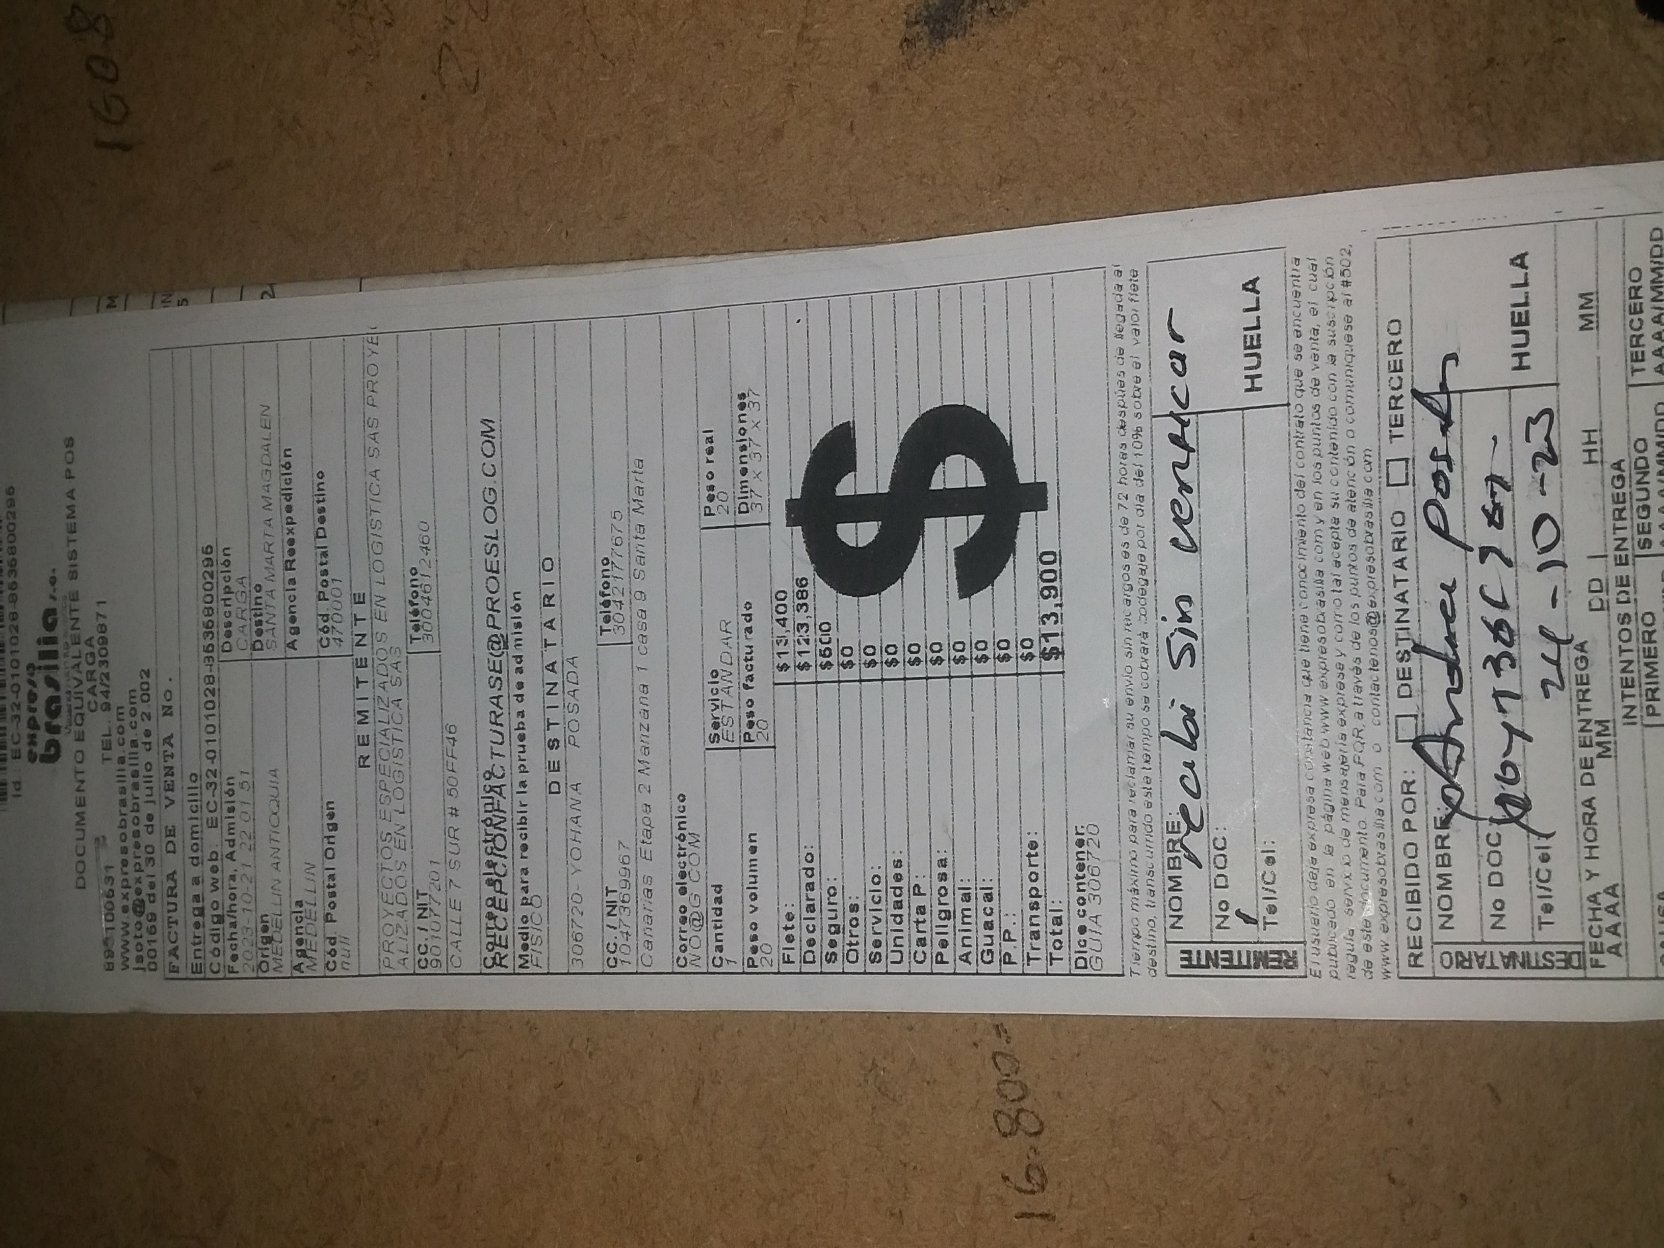 Id : EC-32-0101028-8636800296
expreso
brasilia s.a.
DOCUMENTO EQUIVALENTE SISTEMA POS
CARGA
TEL. 94/2309871
www.expresobrasilia.com
jsoto@expresobrasilia.com
00169 del 30 de julio de 2.002
FACTURA DE VENTA No.
Entrega a domicilio
Código web: EC-32-0101028-8636800296
Fecha/hora. Admisión
2023-10-21 22 01 51
Descripción
CARGA
Origen
MEDELLIN ANTIOQUIA
Destino
SANTA MARTA MAGDALEN
Agencia
MEDELLIN
Agencia Reexpedición
Cód. Postal Origen
null
Cód. Postal Destino
470001
REMITENTE
PROYECTOS ESPECIALIZADOS EN LOGISTICA SAS PROYE
ALIZADOS EN LOGISTICA SAS
CC. / NIT
901077201
Teléfono
3004612460
CALLE 7 SUR # 50FF46
Correo electrónico
RECEPCIONFACTURASE@PROESLOG.COM
Medio para recibir la prueba de admisión
FISICO
DESTINATARIO
306720- YOHANA POSADA
CC. / NIT
1047369967
Teléfono
3042177675
Canarias Etapa 2 Manzana 1 casa 9 Santa Marta
Correo electrónico
NO@G.COM
Cantidad
1
Servicio
ESTANDAR
Peso real
20
Peso volumen
20
Peso facturado
20
Dimensiones
37 X 37 X 37
Flete: $13,400
Declarado: $123,386
Seguro: $500
Otros: $0
Servicio: $0
Unidades: $0
Carta P: $0
Peligrosa: $0
Animal: $0
Guacal: $0
P.P.: $0
Transporte: $0
Total: $13,900
$
Dice contener:
GUIA 306720
Tiempo máximo para reclamar su envío sin recargos es de 72 horas después de llegada al
destino, transcurrido este tiempo se cobrará bodegaje por día del 10% sobre el valor flete
REMITENTE
NOMBRE: recibi Sin verificar
No DOC:
Tel/Cel:
HUELLA
El usuario deja expresa constancia que tiene conocimiento del contrato que se encuentra
publicado en la página web www.expresobrasilia.com y en los puntos de venta, el cual
regula servicio de mensajería expresa y como tal acepta su contenido con la suscripción
de este documento. Para PQR a través de los puntos de atención o comuníquese al #502,
www.expresobrasilia.com o contactenos@expresobrasilia.com
RECIBIDO POR: DESTINATARIO TERCERO
DESTINATARIO
NOMBRE:
No DOC:
Tel/Cel 24-10-23
HUELLA
FECHA Y HORA DE ENTREGA
AAAA MM DD HH MM
INTENTOS DE ENTREGA
PRIMERO SEGUNDO TERCERO
AAAA/MM/DD AAAA/MM/DD
16.800=